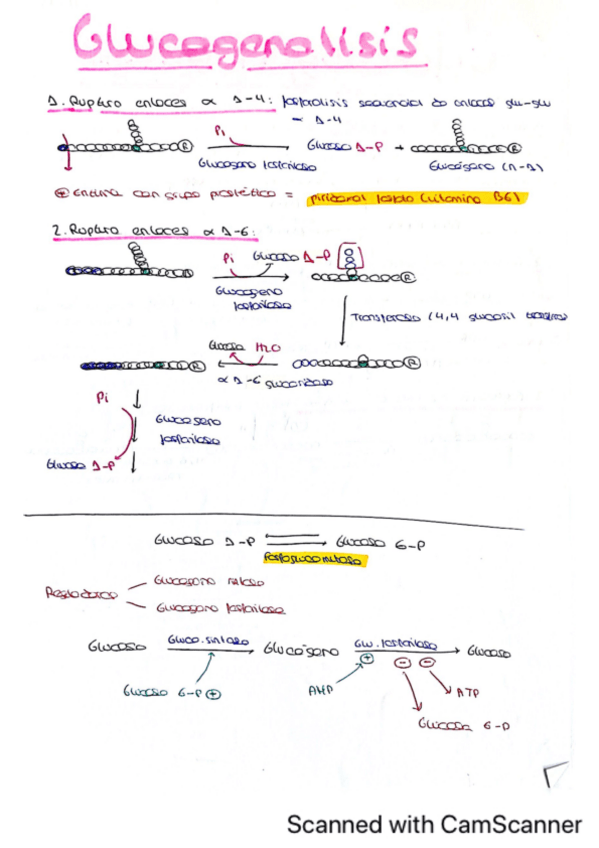 Glucogenolisis
1. Ruptura enlaces α 1-4: fosforolisis secuencial de enlaces glu-glu
α 1-4
R
Pi
Glucosa 1-P +
R
Glucogeno fosforilasa
Glucógeno (n-1)
+ Enzima con grupo prostético = piridoxal fosfato (vitamina B6)
2. Ruptura enlaces α 1-6:
R
Pi
Glucosa 1-P
R
Glucogeno
fosforilasa
Transferasa (4,4 glucosil
Glucosa H2O
R
R
α 1-6 glucosidasa
Pi
Glucogeno
fosforilasa
Glucosa 1-P
Glucosa 1-P
Glucosa 6-P
Fosfoglucomutasa
Glucogeno sintasa
Glucogeno fosforilasa
Glucosa
Gluco. sintasa
Glucógeno
Glu. fosforilasa
Glucosa
+
-
-
Glucosa 6-P +
AMP
ATP
Glucosa 6-P
Scanned with CamScanner